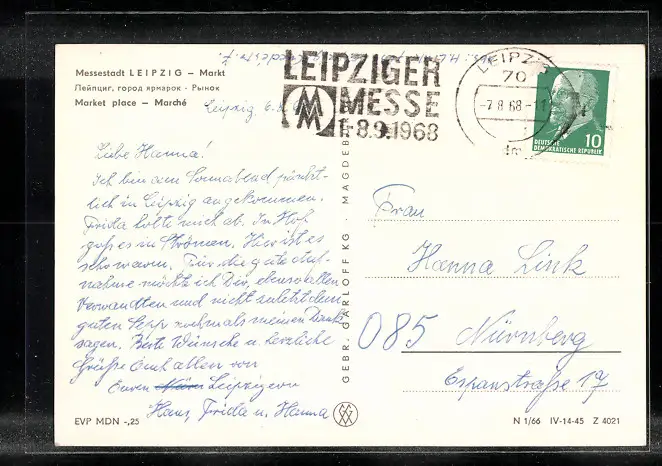 Messestadt LEIPZIG – Markt
Лейпциг, город ярмарок · Рынок
Market place – Marché
Leipzig, 6.8.
Liebe Hanna!
Ich bin am Sonnabend pünkt-
lich in Leipzig angekommen.
Frida holte mich ab. In Hof
goß es in Strömen. Hier ist es
schwarm. Für die gute Auf-
nahme möchte ich Dir, ebenso allen
Verwandten und nicht zuletzt dem
guten Sepp nochmals meinen Dank
sagen. Beste Wünsche u. herzliche
Grüße Euch allen von
Euren Leipzigern
Hans, Frida u. Hanna
EVP MDN -,25
GEBR. GARLOFF KG · MAGDEB
LEIPZIGER
MESSE
1.-8.9.1968
MM
LEIPZIG
70
-7.8.68-1
10
DEUTSCHE
DEMOKRATISCHE REPUBLIK
Frau
Hanna Link
085 Nürnberg
Espanstraße 17
N 1/66 IV-14-45 Z 4021